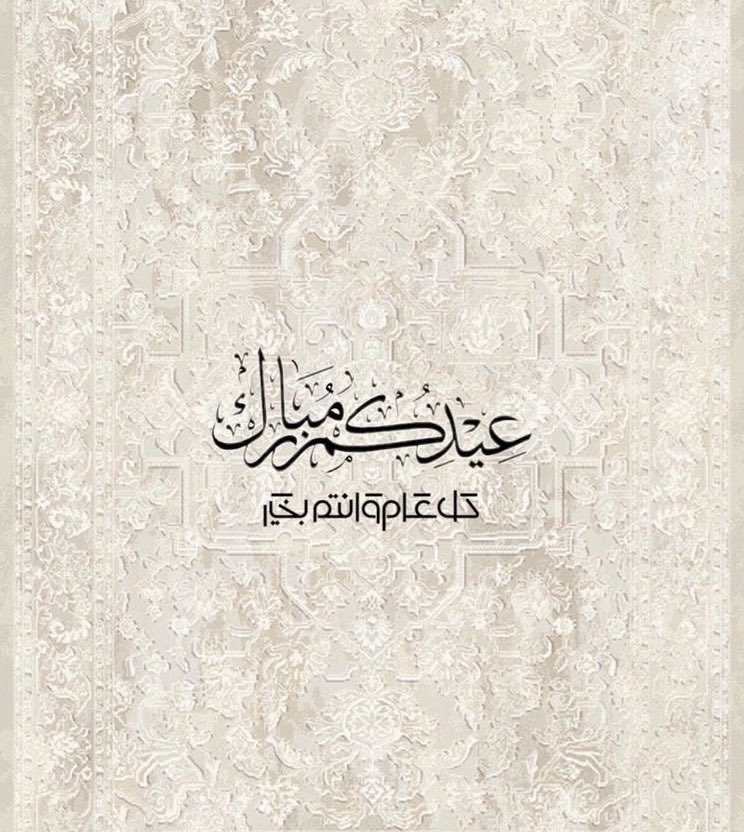 عِيْدِكُم مُبَارَك
كل عام وانتم بخير